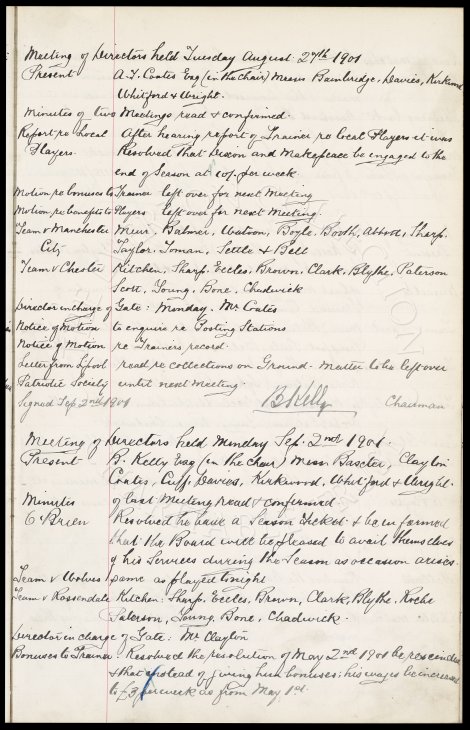 Meeting of Directors held Tuesday August 27th 1901
Present A. T. Coates Esq (in the chair) Messrs Bainbridge, Davies, Kirkwood
Whitford & Wright.
Minutes of two Meetings read & confirmed.
Report re Local After hearing report of Trainer re local Players it was
Players. Resolved that Dixon and Makepeace be engaged to the
end of Season at 10/- per week.
Motion re bonuses to Trainer left over for next Meeting
Motion re benefits to Players left over for next Meeting.
Team v Manchester Muir, Balmer, Watson, Boyle, Booth, Abbott, Sharp.
City Taylor, Toman, Settle & Bell
Team v Chester Kitchen, Sharp, Eccles, Brown, Clark, Blythe, Paterson
Scott, Young, Bone, Chadwick
Director in charge of Gate: Monday, Mr Coates
Notice of Motion to enquire re Posting Stations
Notice of Motion re Trainers record.
Letter from L'pool read re collections on Ground. Matter to be left over
Patriotic Society until next meeting.
Signed Sep 2nd 1901 B Kelly Chairman
Meeting of Directors held Monday Sep. 2nd 1901.
Present B. Kelly Esq (in the chair) Messrs Baxter, Clayton
Coates, Cuff, Davies, Kirkwood, Whitford & Wright.
Minutes of last Meeting read & confirmed.
O'Brien Resolved he have a Season ticket & be informed
that the Board will be pleased to avail themselves
of his Services during the Season as occasion arises.
Team v Wolves same as played tonight
Team v Rossendale Kitchen, Sharp, Eccles, Brown, Clark, Blythe, Roche
Paterson, Young, Bone, Chadwick.
Director in charge of Gate: Mr Clayton
Bonuses to Trainer Resolved the resolution of May 2nd 1901 be rescinded
& that instead of giving him bonuses; his wages be increased
to £3 per week as from May 1st.